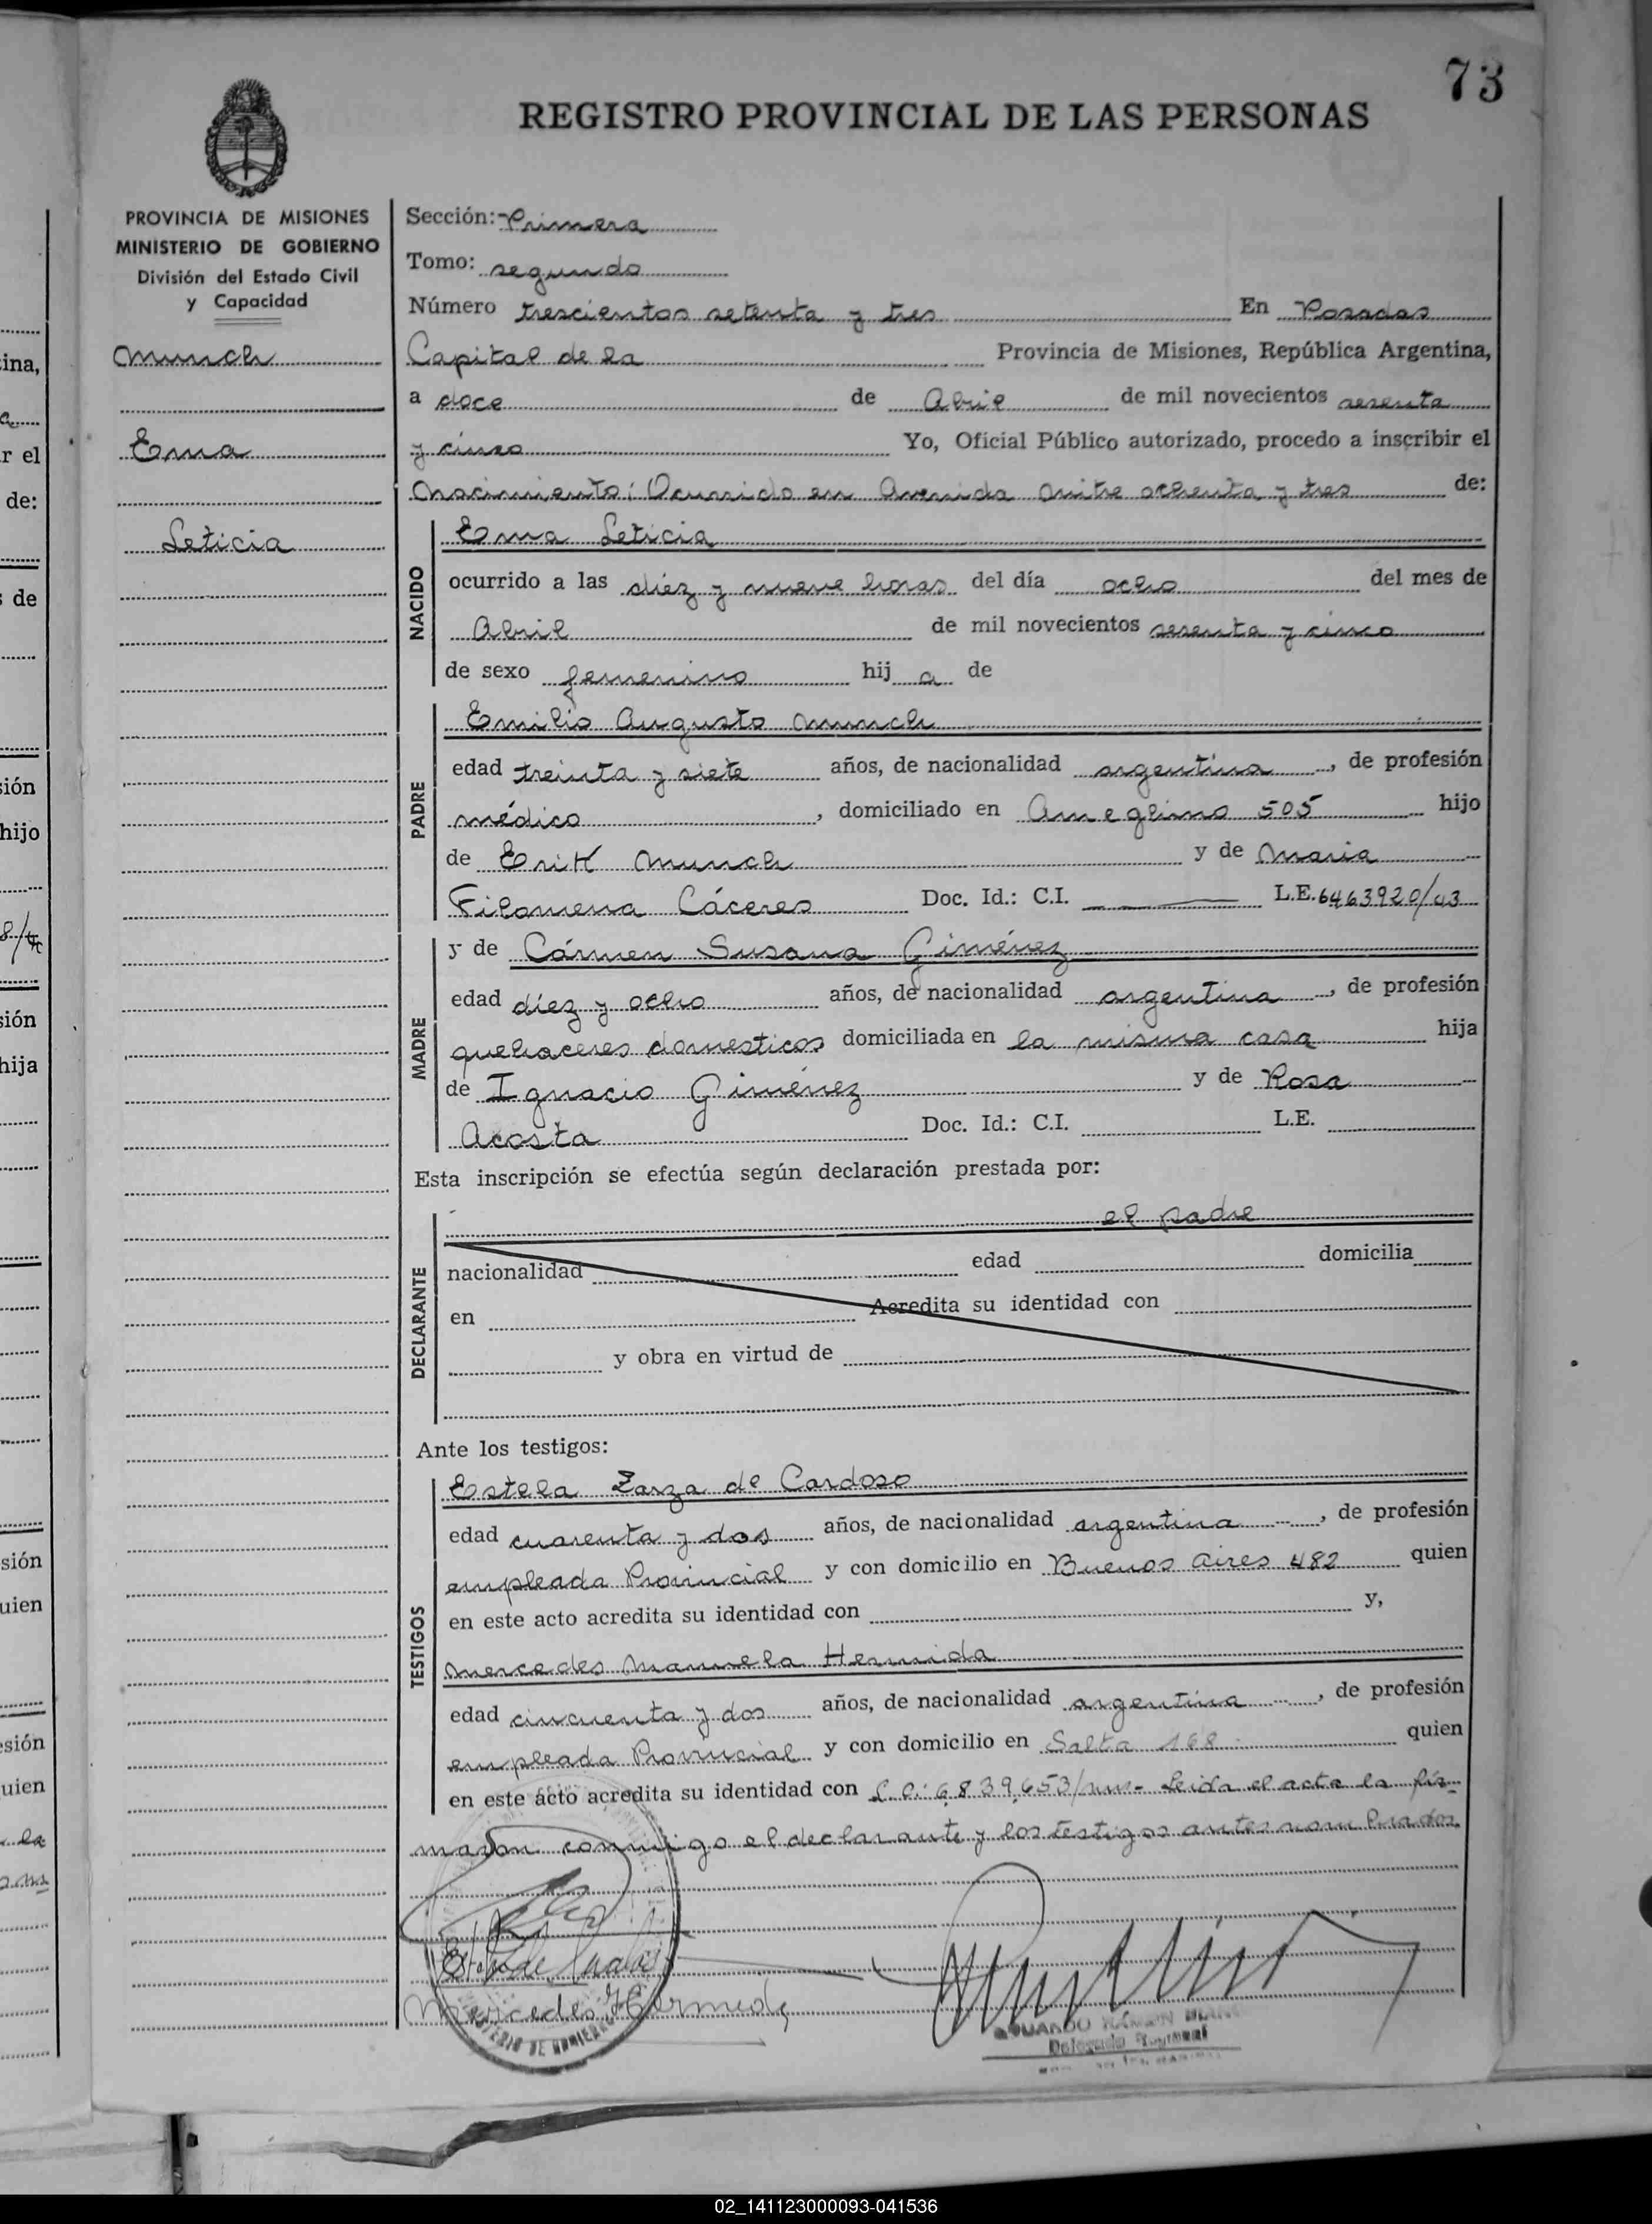 73
REGISTRO PROVINCIAL DE LAS PERSONAS
PROVINCIA DE MISIONES
MINISTERIO DE GOBIERNO
División del Estado Civil
y Capacidad
Munch
Ema
Leticia
Sección: Primera
Tomo: segundo
Número trescientos setenta y tres En Posadas
Capital de la Provincia de Misiones, República Argentina,
a doce de Abril de mil novecientos sesenta
y cinco Yo, Oficial Público autorizado, procedo a inscribir el
Nacimiento: Ocurrido en Avenida Mitre ochenta y tres de:
NACIDO
Ema Leticia
ocurrido a las diéz y nueve horas del día ocho del mes de
Abril de mil novecientos sesenta y cinco
de sexo femenino hij a de
PADRE
Emilio Augusto Munch
edad treinta y siete años, de nacionalidad argentina, de profesión
médico, domiciliado en Ameghino 505 hijo
de Erik Munch y de Maria
Filomena Cáceres Doc. Id.: C.I. L.E. 6463920/43
MADRE
y de Cármen Susana Giménez
edad diez y ocho años, de nacionalidad argentina, de profesión
quehaceres domesticos domiciliada en la misma casa hija
de Ignacio Giménez y de Rosa
Acosta Doc. Id.: C.I. L.E.
Esta inscripción se efectúa según declaración prestada por:
DECLARANTE
el padre
nacionalidad edad domicilia
en Acredita su identidad con
y obra en virtud de
Ante los testigos:
TESTIGOS
Estela Zarza de Cardoso
edad cuarenta y dos años, de nacionalidad argentina, de profesión
empleada Provincial y con domicilio en Buenos Aires 482 quien
en este acto acredita su identidad con y,
Mercedes Manuela Hermida
edad cincuenta y dos años, de nacionalidad argentina, de profesión
empleada Provincial y con domicilio en Salta 168 quien
en este acto acredita su identidad con 6.839.653 Leida el acta la fir-
maron conmigo el declarante y los testigos antes nombrados.
Mercedes Hermida
Delegado Regional
02_141123000093-041536